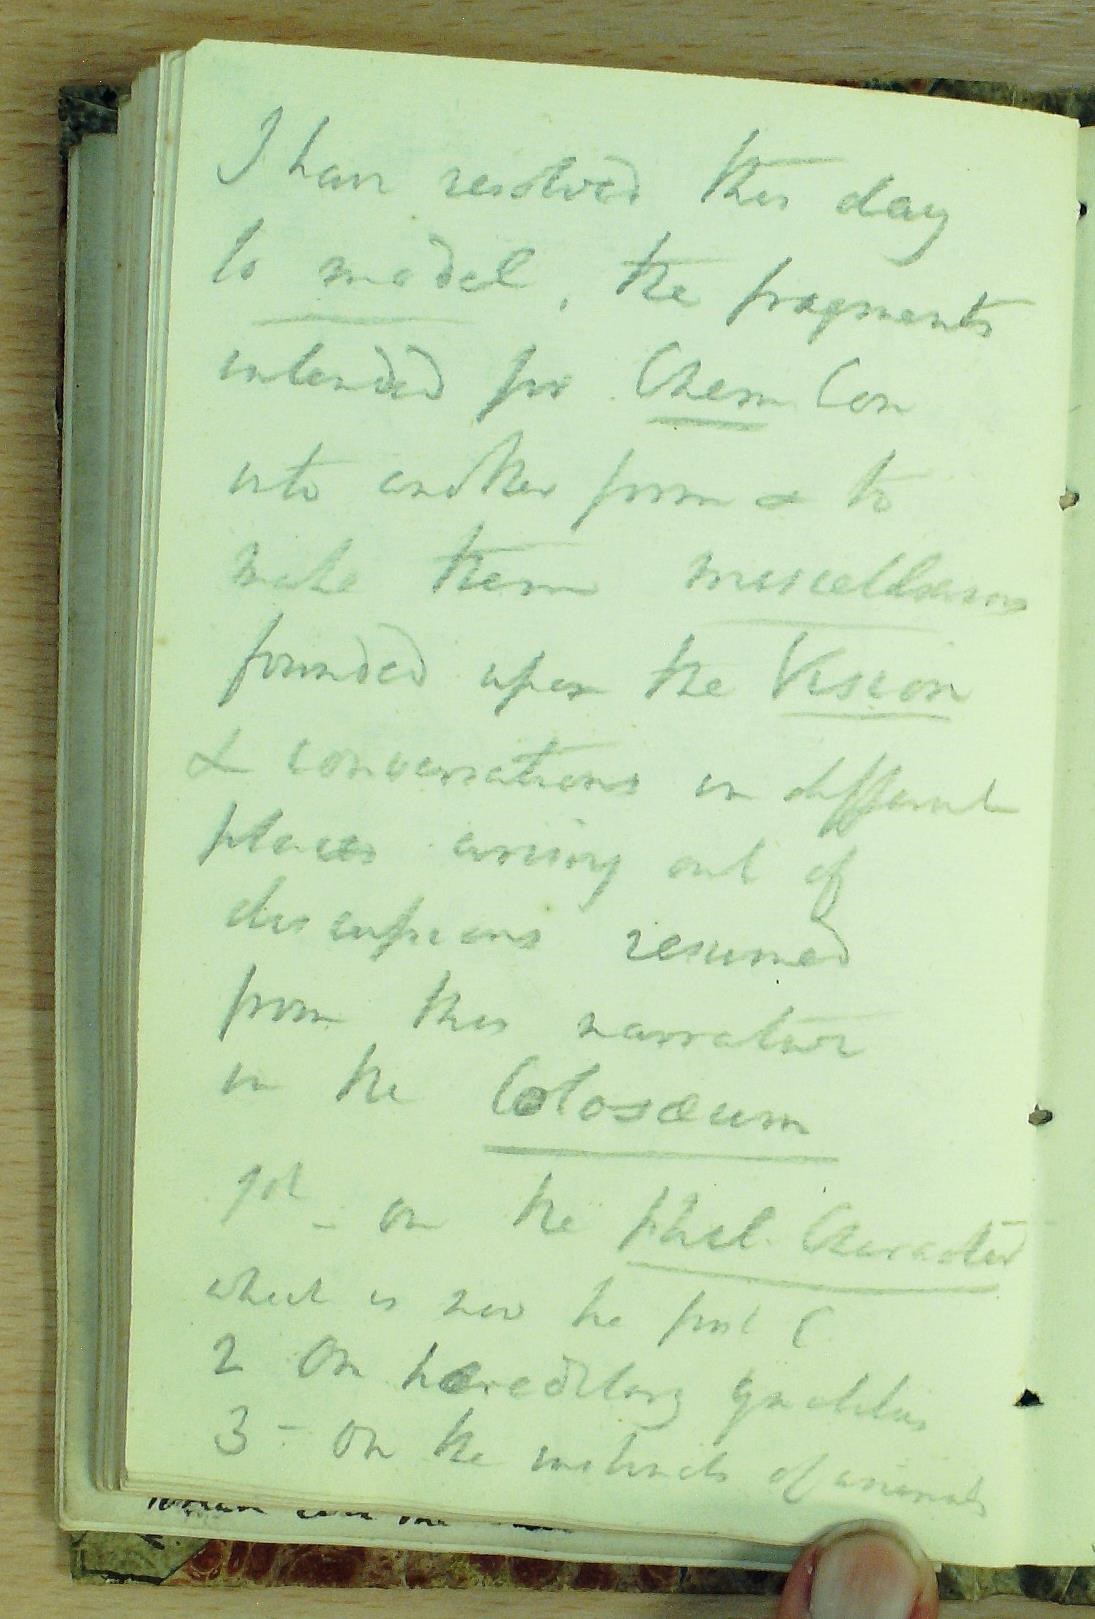 I have resolved this day
to model, the fragments
intended for Chem Con
into another form & to
make them miscellaneous
founded upon the Vision
& conversations in different
places arising out of
discussions resumed
from this narrative
in the Colosæum
on the Phil. Character
which is now the first C
2 On hæreditary qualities
3 - On the instincts of animals